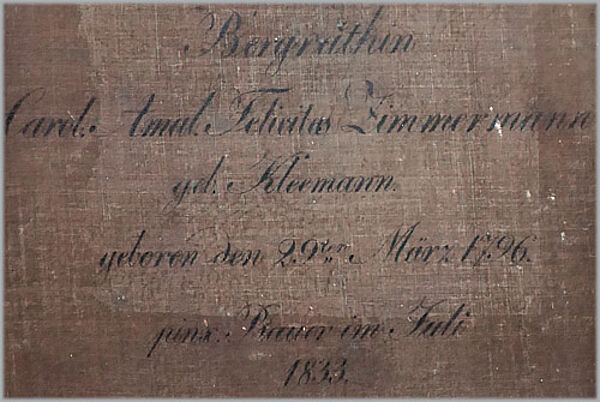 Bergräthin
Carol. Amal. Felicitas Zimmermann
geb. Kleemann.
geboren den 29ten März 1796.
pinx. Rauer im Juli
1833.